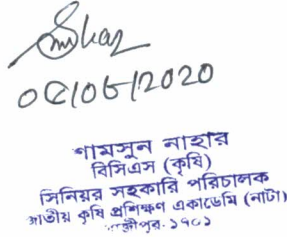 ০৫/০৮/2020
শামসুন নাহার
বিসিএস (কৃষি)
সিনিয়র সহকারি পরিচালক
জাতীয় কৃষি প্রশিক্ষণ একাডেমি (নাটা)
গাজীপুর- ১৭০১